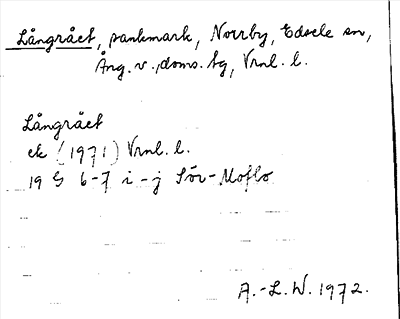 Långrået, sankmark, Norrby, Edsele sn,
Ång. v. doms. tg, Vrnl. l.
Långrået
ek (1971) Vrnl. l.
19 G 6-7 i-j Sör-Moflo
A.-L. W. 1972.